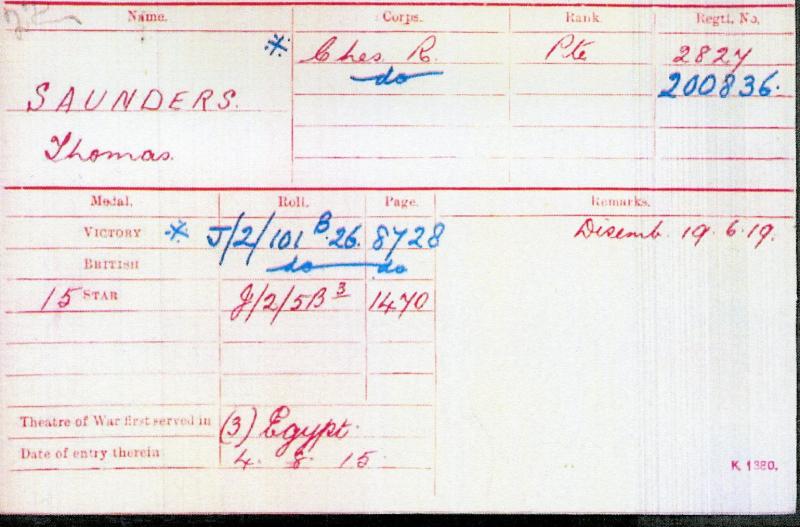 Name. Corps. Rank. Regtl. No.
* Ches. R. Pte 2827
do 200836.
SAUNDERS.
Thomas.
Medal. Roll. Page. Remarks.
VICTORY * J/2/101 B. 26. 8728 Disemb. 19.6.19.
BRITISH do do
15 STAR J/2/5B3 1470
Theatre of War first served in (3) Egypt.
Date of entry therein 4. 8. 15.
K. 1380.